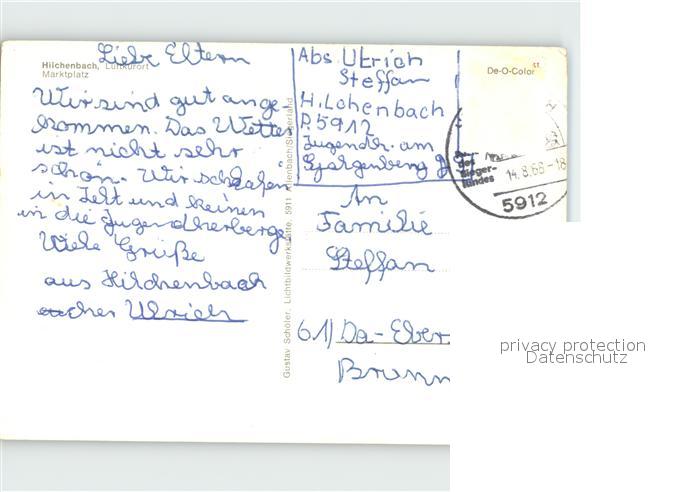 Hilchenbach, Luftkurort
Marktplatz
Liebe Eltern
Wir sind gut ange-
kommen. Das Wetter
ist nicht sehr
schön. Wir schlafen
in Zelt und keinen
in die Jugendherberge
Viele Grüße
aus Hilchenbach
Ulrich
Gustav Schöler, Lichtbildwerkstätte, 5911 Allenbach/Siegerland
Abs. Ulrich
Steffan
Hilchenbach
P. 5912
Jugendh. am
An
Familie
Steffan
61) Da-Eber
Brunn
De-O-Color
des
Sieger-
landes
14.8.66-18
5912
privacy protection
Datenschutz